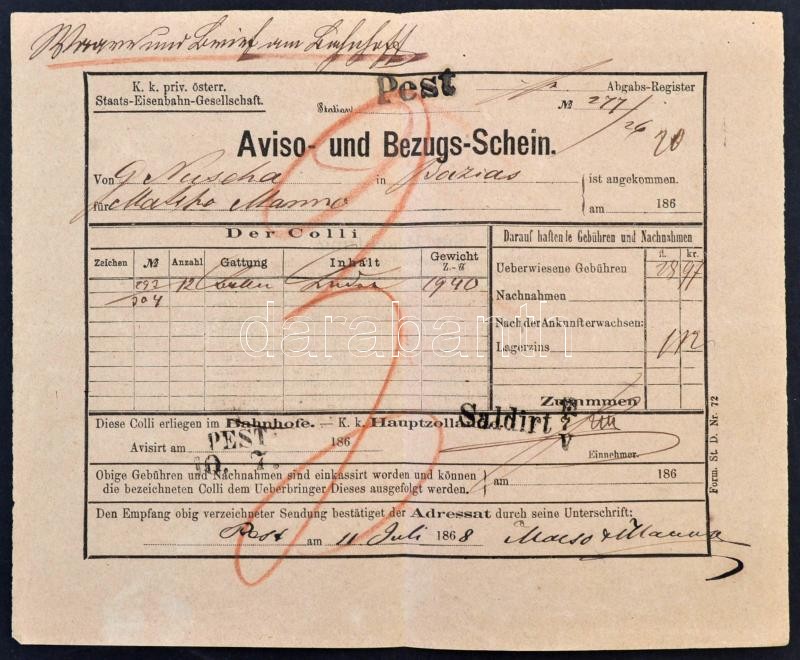 Waare und Brief am Bahnhoff
K. k. priv. österr.
Staats-Eisenbahn-Gesellschaft.
Station Pest
Abgabs-Register
№ 277/26 20
Aviso- und Bezugs-Schein.
Von G Nuscha in Bazias ist angekommen.
für Matsko Manno am 186
Der Colli
Darauf haftende Gebühren und Nachnahmen
Zeichen № Anzahl Gattung Inhalt Gewicht Z.-℔
fl. kr.
292/304 12 1940
Ueberwiesene Gebühren 28 97
Nachnahmen
Nach der Ankunft erwachsen:
Lagerzins
Zusammen
darabanth
Diese Colli erliegen im Bahnhofe. — K. k. Hauptzollamt
Saldirt
Avisirt am PEST. 10. 7. 186
Einnehmer.
Obige Gebühren und Nachnahmen sind einkassirt worden und können
die bezeichneten Colli dem Ueberbringer Dieses ausgefolgt werden.
am 186
Den Empfang obig verzeichneter Sendung bestätiget der Adressat durch seine Unterschrift:
Pest am 11 Juli 1868
Form. St. D. Nr. 72